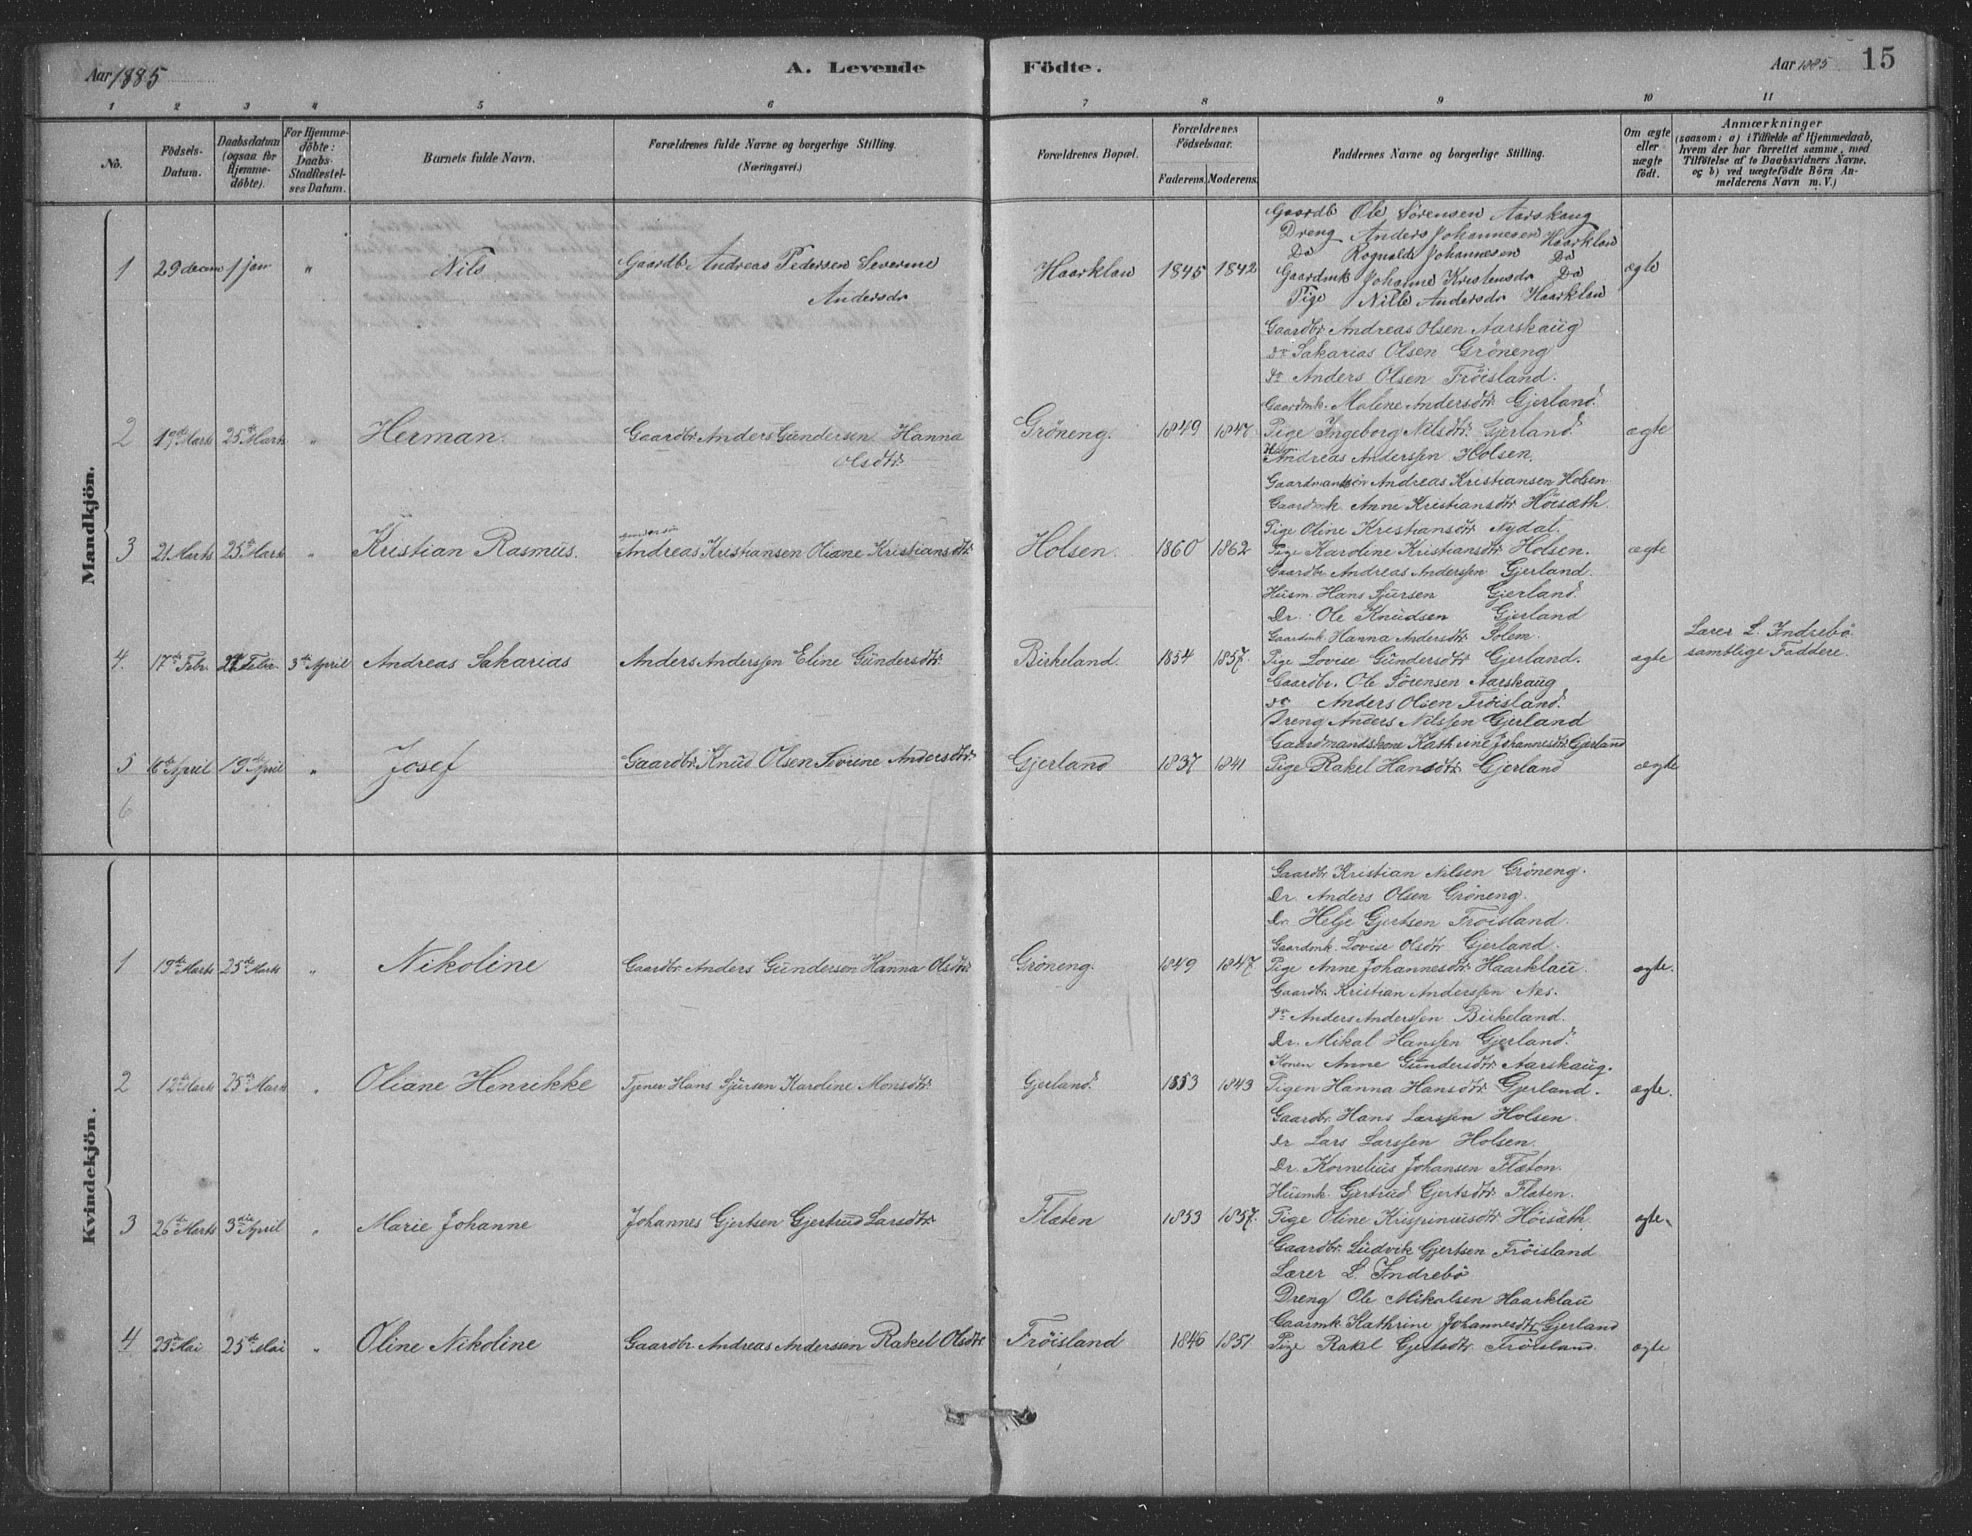 Aar 1885 A. Levende Födte. Aar 1885 15
1 2 3 4 5 6 7 8 9 10 11
No. Födsels-Datum. Daabsdatum (ogsaa for Hjemme-döbte). For Hjemme-döbte: Daabs-Stadfæstel-ses Datum. Barnets fulde Navn. Forældrenes fulde Navne og borgerlige Stilling. (Næringsvei.) Forældrenes Bopæl. Forældrenes Födselsaar. Faderens. Moderens. Faddernes Navne og borgerlige Stilling. Om ægte eller uægte födt. Anmærkninger (saasom: a) i Tilfælde af Hjemmedaab, hvem der har forrettet samme, med Tilföielse af to Daabsvidners Navne, og b) ved uægtefödte Börn An-melderens Navn m. V.)
Mandkjön.
Gaardb Ole Sörensen Aarskaug
Dreng Anders Johannesen Haarklau
Do Rognald Johannesen Do
1 29 decem 1 jan " Nils Gaardb. Andreas Pedersen Severine Haarklau 1845 1842 Gaardmk Johanne Kristensdr Do ægte
Andersdr Pige Nille Andersdr Haarklau
Gaardbr. Andreas Olsen Aarskaug
dr Sakarias Olsen Gröneng
dr Anders Olsen Fröisland.
Gaardmk. Malene Andersdtr. Gjerland.
2 19de Marts 25de Marts " Herman. Gaardbr. Anders Gundersen Hanna Gröneng. 1849 1847. Pige Ingeborg Nilsdtr. Gjerland ægte
Olsdtr. Andreas Anderssen Holsen.
Gaardmandssön Andreas Kristiansen Holsen
Gaardmk. Anne Kristiansdtr Höisæth.
Pige Oline Kristiansdtr Nydal.
3 21 Marts 25de Marts " Kristian Rasmus. Andreas Kristiansen Oliane Kristiansdtr Holsen. 1860 1862 Pige Karoline Kristiansdtr Holsen. ægte
Gaardbr Andreas Anderssen Gjerland.
Husm. Hans Sjursen Gjerland.
Dr. Ole Knudsen Gjerland
Gaardmk Hanna Andersdtr Solem. Lærer L. Indrebö
4. 17de Febr. Febr. 3die April Andreas Sakarias Anders Anderssen Eline Gundersdtr Birkeland. 1854 1857. Pige Lovise Gundersdtr Gjerland. ægte samtlige Faddere.
Gaardbr. Ole Sörensen Aarskaug
dr Anders Olsen Fröisland.
Dreng Anders Nilssen Gjerland
Gaardmandskone Kathrine Johannesdtr Gjerland
5 6te April 19de April " Josef Gaardbr. Knud Olsen Sivrine Andersdtr. Gjerland 1837 1841 Pige Rakel Hansdtr Gjerland ægte
6
Kvindekjön.
Gaardbr. Kristian Nilsen Gröneng.
Dr. Anders Olsen Gröneng.
Dr. Helje Gjertsen Fröisland.
Gaardmk. Lovise Olsdtr Gjerland.
1 19de Marts 25de Marts " Nikoline Gaardbr. Anders Gundersen Hanna Olsdtr Gröneng. 1849 1847 Pige Anne Johannesdtr Haarklau. ægte.
Gaardbr. Kristian Anderssen Nes.
dr Anders Anderssen Birkeland.
Dr. Mikal Hanssen Gjerland.
Konen Anne Gundersdtr Aarskaug.
2 12te Marts 25de Marts " Oliane Henrikke Tjener Hans Sjursen Karoline Monsdtr. Gjerland. 1853 1843 Pigen Hanna Hansdtr. Gjerland. ægte.
Gaardbr. Hans Larssen Holsen.
Dr Lars Larssen Holsen.
Dr. Kornelius Johansen Flæten.
Husmk. Gjertrud Gjertsdtr. Flæten.
3 26de Marts 3die April " Marie Johanne Johannes Gjertsen Gjertrud Larsdtr Flæten 1853 1857. Pige Oline Krispinusdtr Höisæth ægte.
Gaardbr. Ludvik Gjertsen Fröisland
Lærer L. Indrebö
Dreng Ole Mikalsen Haarklau
Gaarmk Kathrine Johannesdtr Gjerland
4 Mai 25de Mai " Oline Nikoline Gaardbr. Andreas Anderssen Rakel Olsdtr Fröisland 1846 1851 Pige Rakel Gjertsdtr Fröisland. ægte